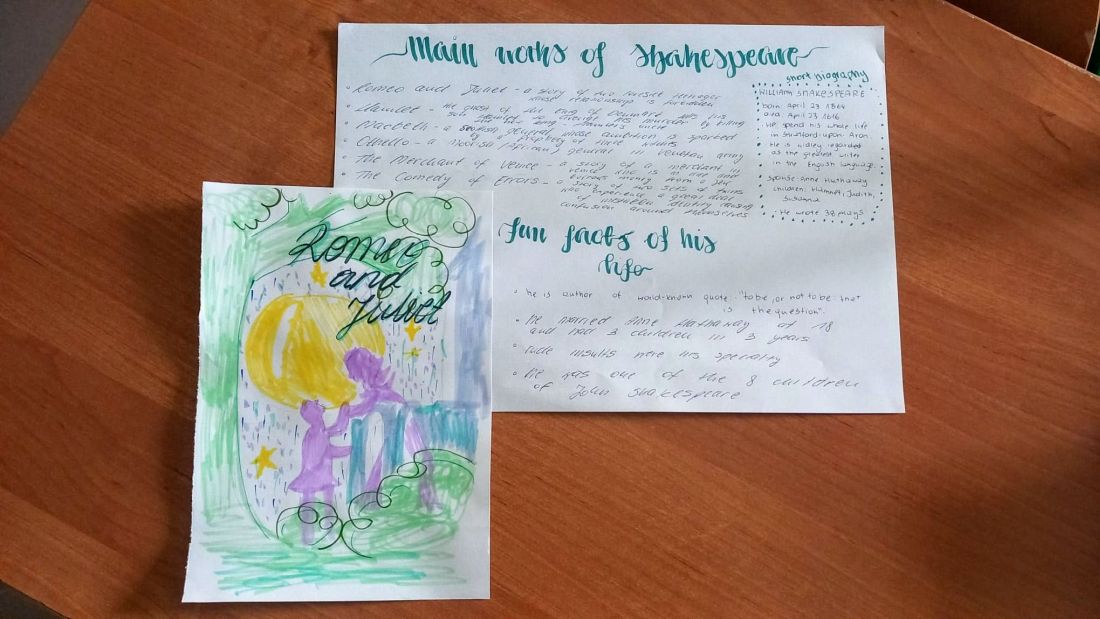 Main works of Shakespeare
• Romeo and Juliet - a story of two teenager
whose relationship is forbidden
• Hamlet - the ghost of the king of Denmark his
son to avenge his murder by killing
the king Hamlet's uncle
• Macbeth - a scottish general whose ambition is sparked
by a prophecy of three
• Othello - a moorish (African) general in venetian army
• The Merchant of Venice - a story of a merchant in
Venice who is in and
borrows money from a
• The Comedy of Errors - a story of two sets of twins
who experience a great deal
of mistaken identity causing
confusion around themselves
short biography
WILLIAM SHAKESPEARE
born: April 23
died: April 23 1616
He spend his whole life
in Stratford upon
He is widley regarded
as the greatest writer
in the English language.
spouse: Anne Hathaway
children: Judith,
Susanna
He wrote 38
fun facts of his
life
• he is author of world-known quote: "to be, or not to be: that
is the question".
• He married Anne Hathaway at 18
and had 3 children in 3 years
• rude insults were his speciality
• He was one of the 8 children
of John Shakespeare
Romeo
and
Juliet